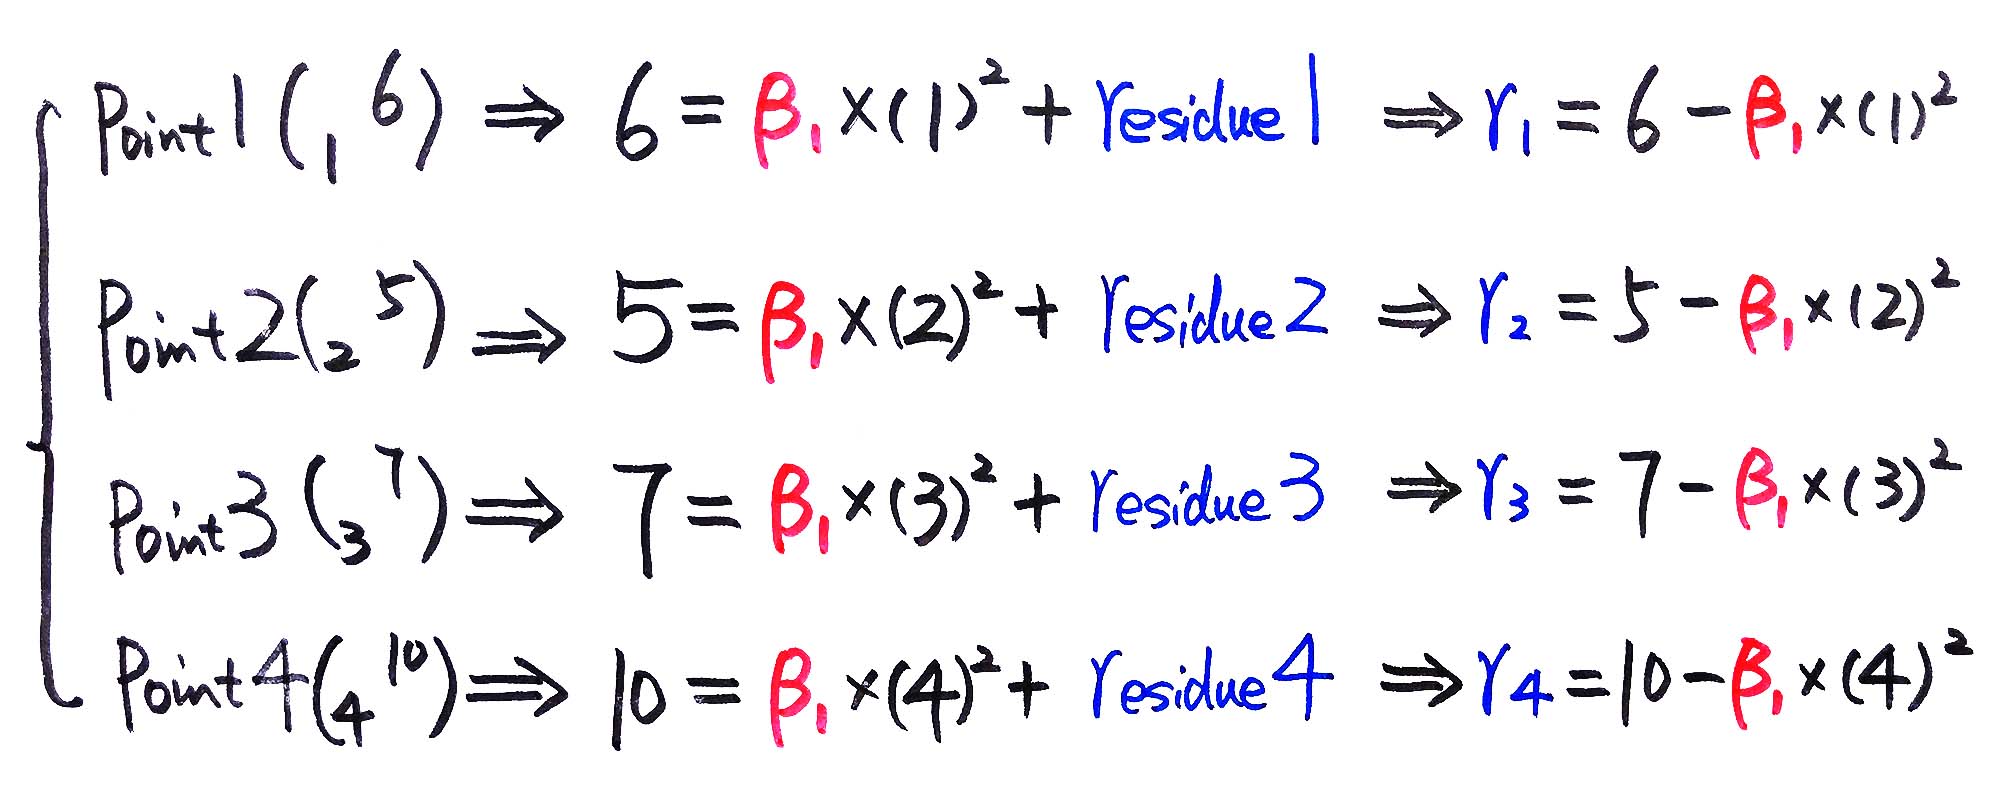 Point 1 (1 6) ⇒ 6 = β₁ × (1)² + residue 1 ⇒ r₁ = 6 − β₁ × (1)²
Point 2 (2 5) ⇒ 5 = β₁ × (2)² + residue 2 ⇒ r₂ = 5 − β₁ × (2)²
Point 3 (3 7) ⇒ 7 = β₁ × (3)² + residue 3 ⇒ r₃ = 7 − β₁ × (3)²
Point 4 (4 10) ⇒ 10 = β₁ × (4)² + residue 4 ⇒ r₄ = 10 − β₁ × (4)²